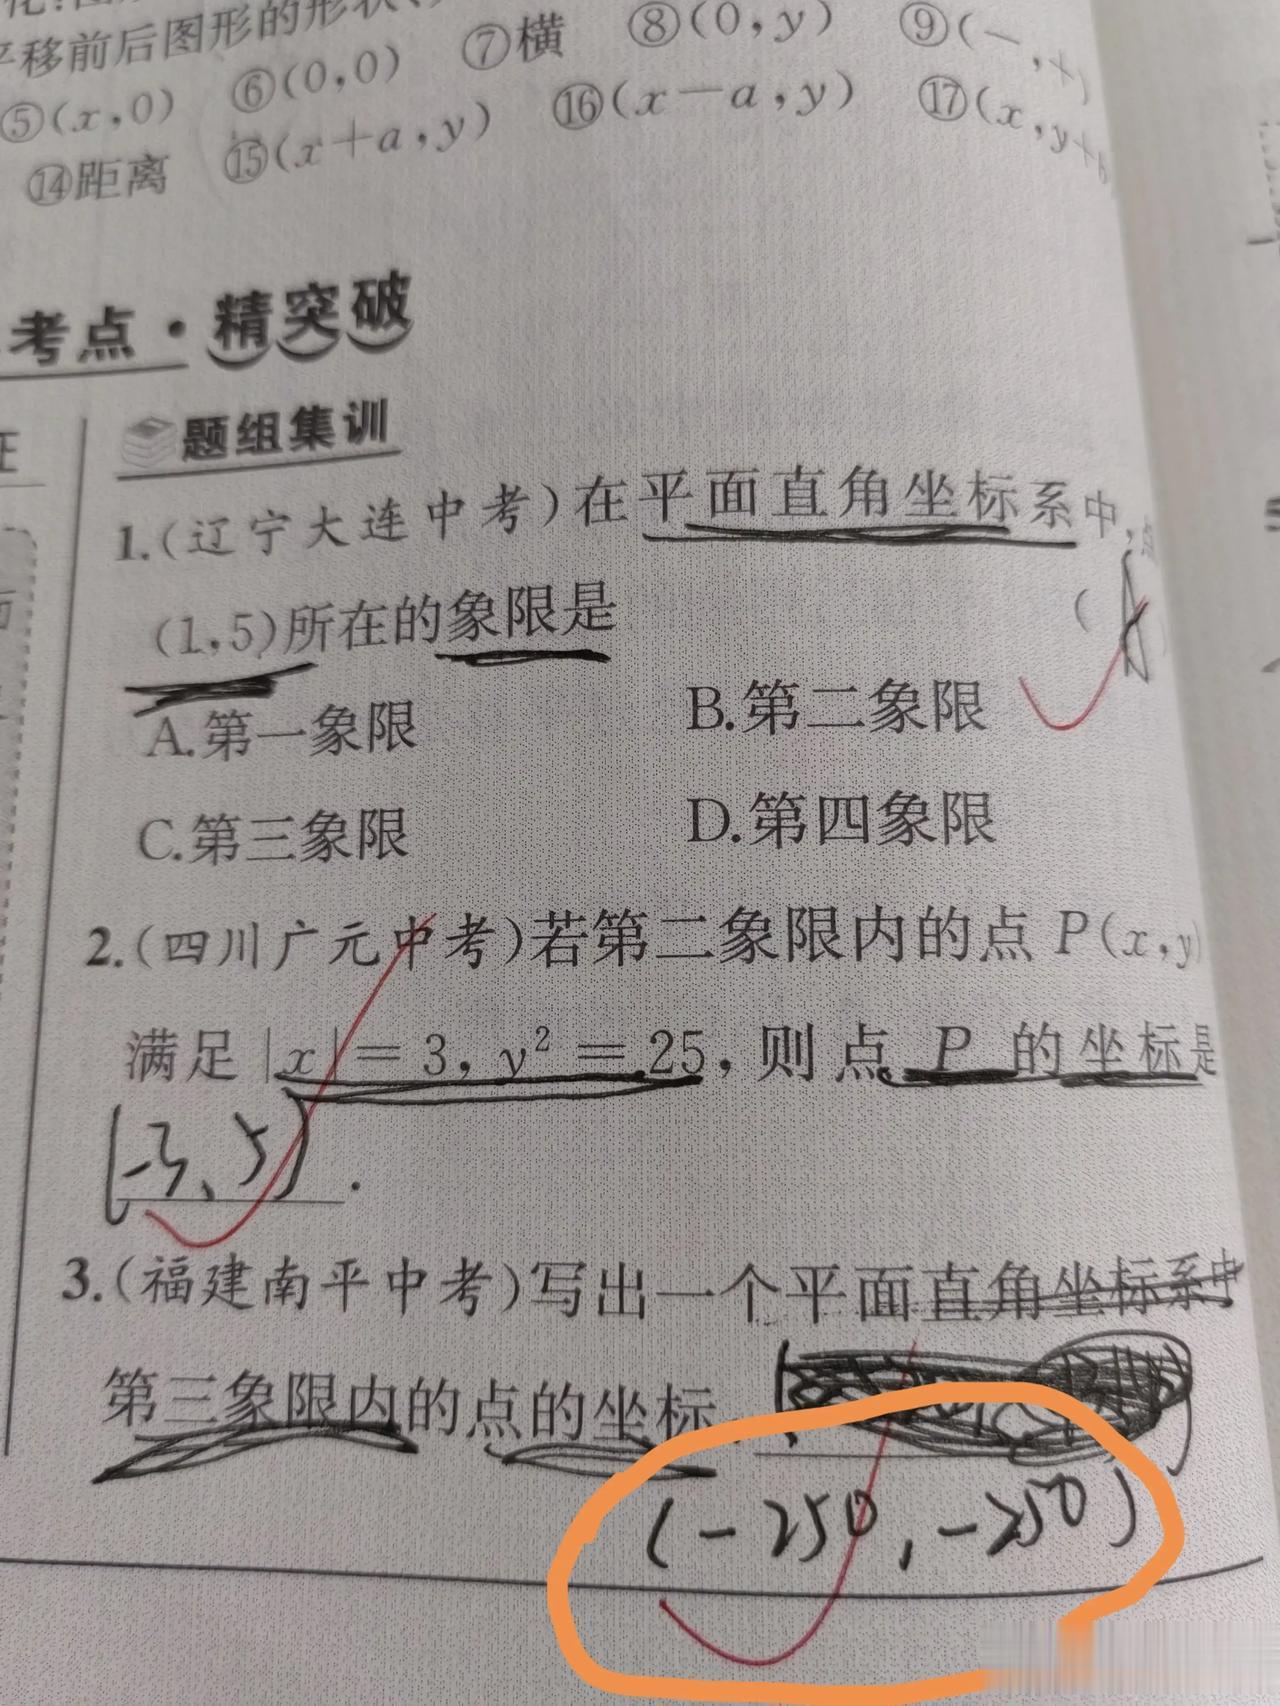 平移前后图形的形状、
⑤(x,0) ⑥(0,0) ⑦横 ⑧(0,y) ⑨(-,+)
⑭距离 ⑮(x+a,y) ⑯(x-a,y) ⑰(x,y+b
考点·精突破
题组集训
1.(辽宁大连中考)在平面直角坐标系中,点
(1,5)所在的象限是 (A)
A.第一象限 B.第二象限
C.第三象限 D.第四象限
2.(四川广元中考)若第二象限内的点P(x,y)
满足|x|=3,y²=25,则点P的坐标是
(-3、5).
3.(福建南平中考)写出一个平面直角坐标系中
第三象限内的点的坐标
(-250,-250)